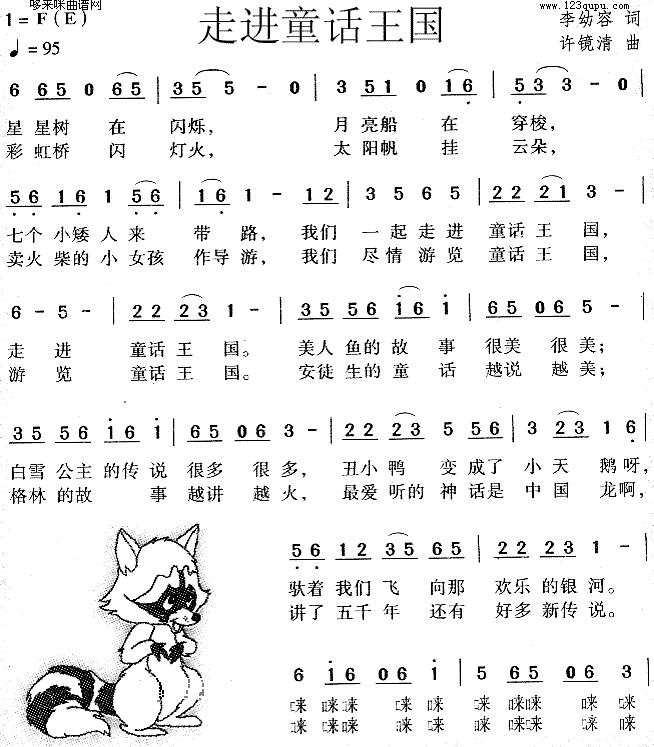 哆来咪曲谱网
www.123qupu.com
1=F(E)
走进童话王国
李幼容 词
♩=95
许镜清 曲
6 65 0 65 | 35 5 - 0 | 3 51 0 16 | 53 3 - 0
星 星树 在 闪烁， 月 亮船 在 穿梭，
彩 虹桥 闪 灯火， 太 阳帆 挂 云朵，
56 16 1 56 | 16 1 - 12 | 3 5 6 5 | 22 21 3 -
七个 小矮 人 来 带 路， 我们 一 起 走 进 童话 王 国，
卖火 柴的 小 女孩 作导 游， 我们 尽 情 游 览 童话 王 国，
6 - 5 - | 22 23 1 - | 35 56 i6 i | 65 06 5 -
走 进 童话 王 国。 美人 鱼的 故 事 很美 很 美；
游 览 童话 王 国。 安徒 生的 童 话 越说 越 美；
35 56 i6 i | 65 06 3 - | 22 23 5 56 | 3 23 16
白雪 公主 的传 说 很多 很 多， 丑小 鸭 变 成了 小 天 鹅呀，
格林 的故 事 越讲 越 火， 最爱 听的 神 话是 中 国 龙啊，
56 12 35 65 | 22 23 1 -
驮着 我们 飞 向那 欢乐 的银 河。
讲了 五千 年 还有 好多 新传 说。
6 i6 06 i | 5 65 06 3 |
咪 咪咪 咪 咪 咪 咪咪 咪 咪
咪 咪咪 咪 咪 咪 咪咪 咪 咪